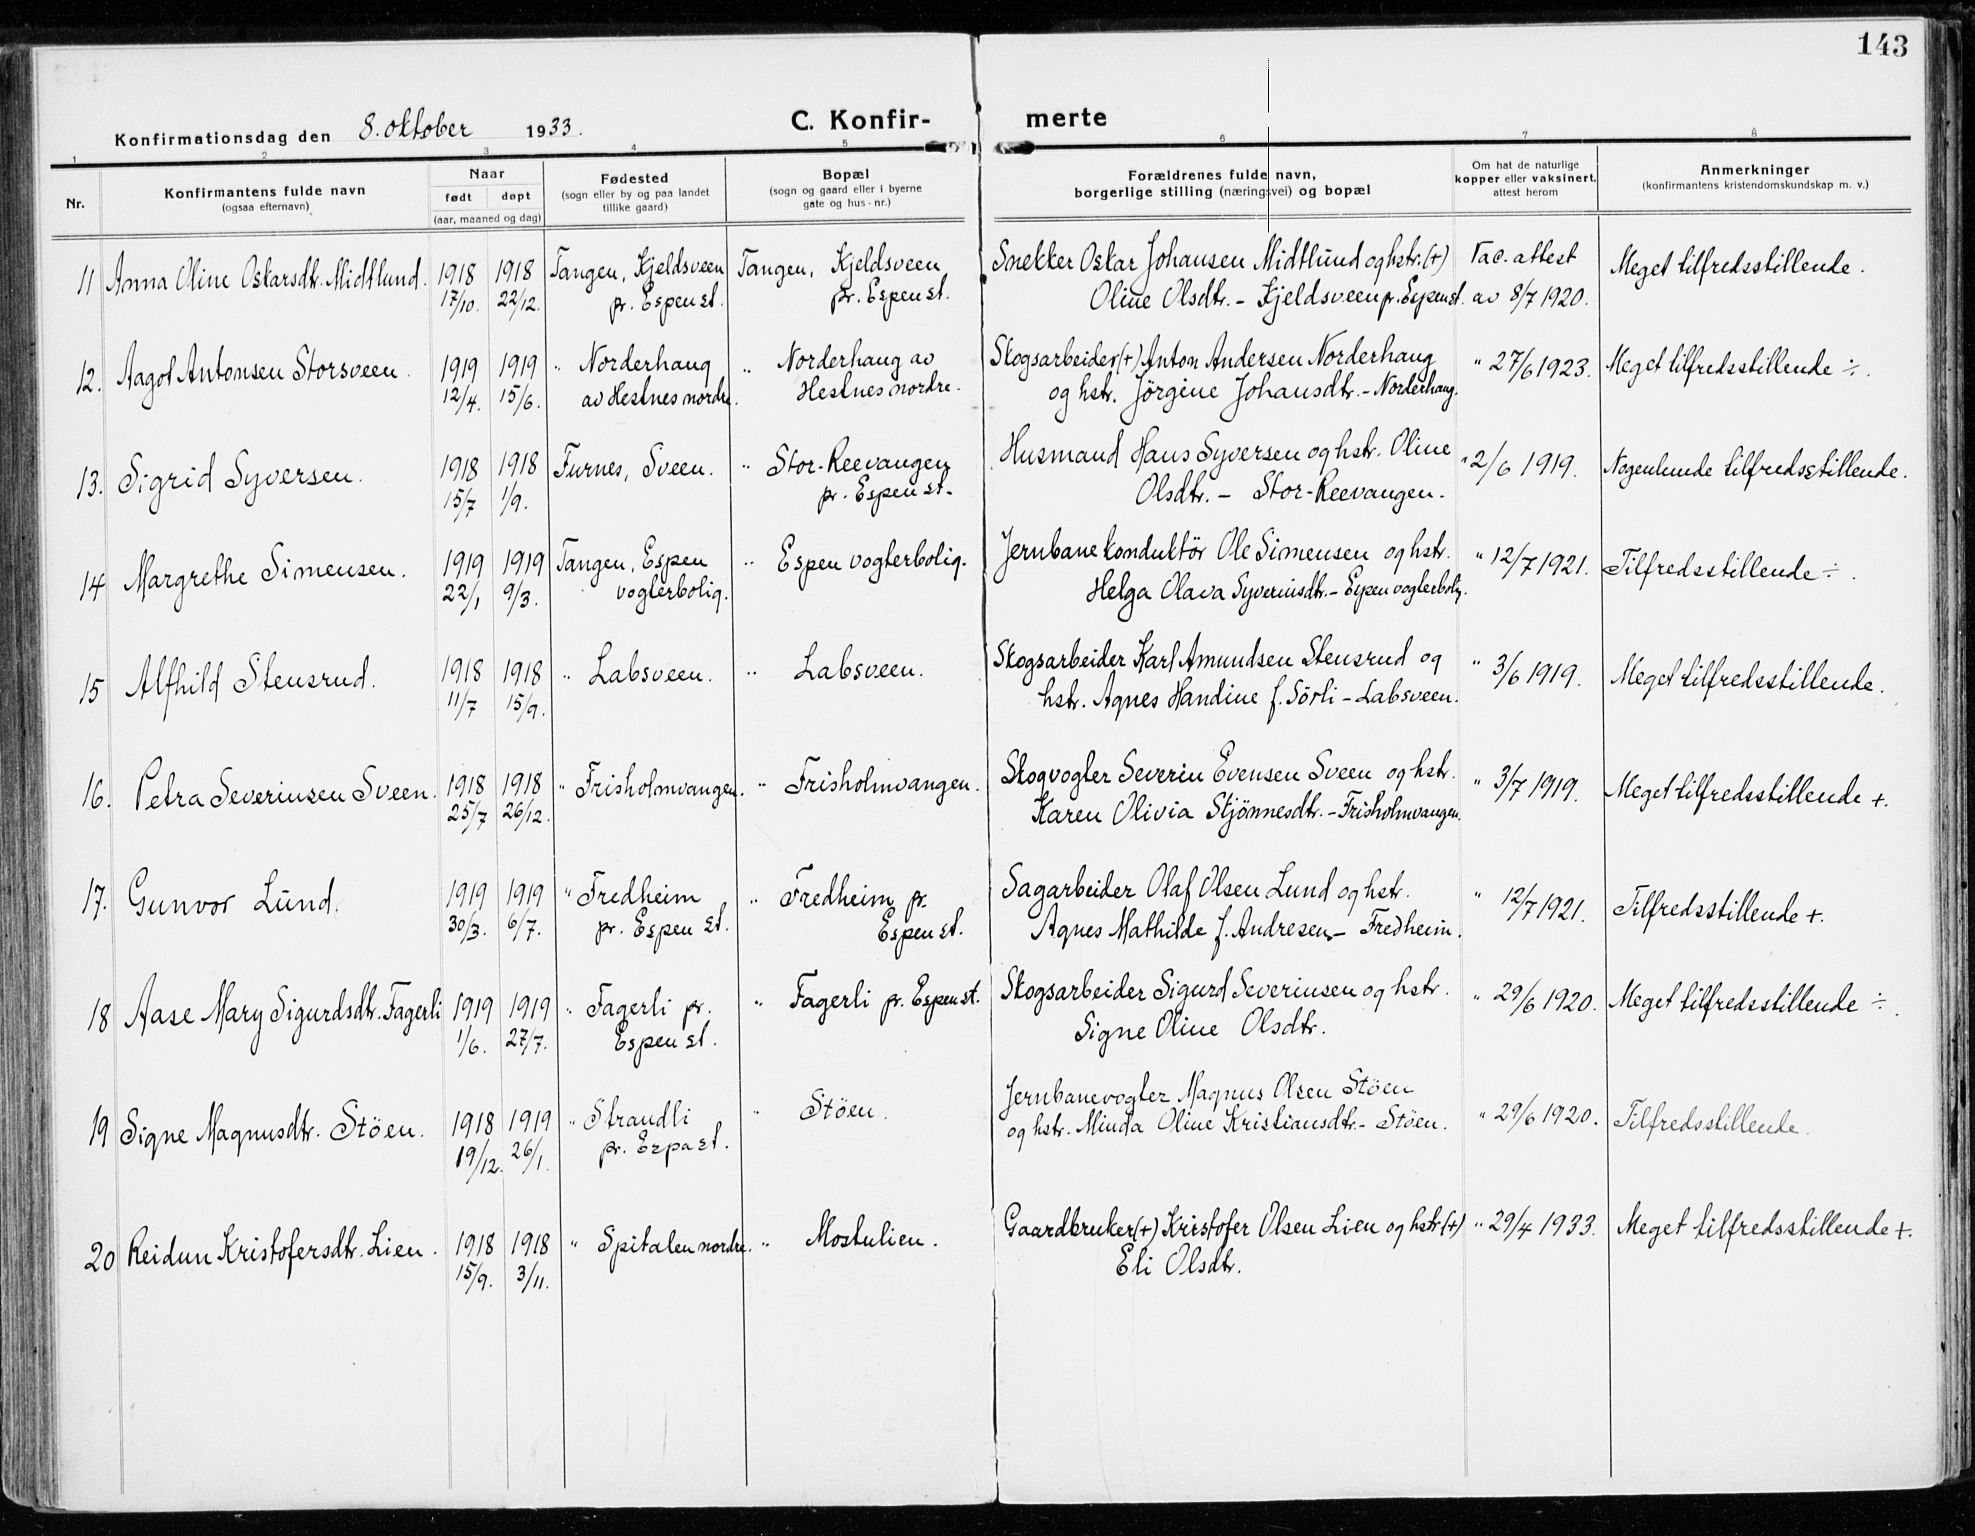 143
Konfirmationsdag den 8. oktober 1933.
C. Konfir-
merte
1 2 3 4 5 6 7 8
Nr.
Konfirmantens fulde navn
(ogsaa efternavn)
Naar
født døpt
(aar, maaned og dag)
Fødested
(sogn eller by og paa landet
tillike gaard)
Bopæl
(sogn og gaard eller i byerne
gate og hus-nr.)
Forældrenes fulde navn,
borgerlige stilling (næringsvei) og bopæl
Om hat de naturlige
kopper eller vaksinert,
attest herom
Anmerkninger
(konfirmantens kristendomskundskap m. v.)
11 Anna Oline Oskarsdtr. Midtlund. 1918 1918 Tangen, Kjeldsveen Tangen, Kjeldsveen Snekker Oskar Johansen Midtlund og hstr.(+) Vac. attest Meget tilfredsstillende.
17/10. 22/12. pr. Espen st. pr. Espen st. Oline Olsdtr. - Kjeldsveen pr. Espen st. av 8/7 1920.
12. Aagot Antonsen Storsveen. 1919 1919 " Norderhaug " Norderhaug av Skogsarbeider(+) Anton Andersen Norderhaug " 27/6 1923. Meget tilfredsstillende ÷.
12/4. 15/6. av Hestnes nordre. Hestnes nordre. og hstr. Jørgine Johansdtr. - Norderhaug.
13. Sigrid Syversen. 1918 1918 Furnes, Sveen. " Stor-Reevangen Husmand Hans Syversen og hstr. Oline " 2/6 1919. Nogenlunde tilfredsstillende.
15/7 1/9. pr. Espen st. Olsdtr. - Stor-Reevangen.
14 Margrethe Simensen. 1919 1919 Tangen, Espen " Espen vogterbolig. Jernbanekonduktör Ole Simensen og hstr. " 12/7 1921. Tilfredsstillende ÷.
22/1 9/3. vogterbolig. Helga Olava Syverinsdtr. - Espen vogterbolig.
15 Alfhild Stensrud. 1918 1918 " Labsveen. " Labsveen. Skogsarbeider Karl Amundsen Stensrud og " 3/6 1919. Meget tilfredsstillende.
11/7 15/9. hstr. Agnes Handine f. Sörli - Labsveen.
16. Petra Severinsen Sveen. 1918 1918 " Frisholmvangen. " Frisholmvangen. Skogvogter Severin Evensen Sveen og hstr. " 3/7 1919. Meget tilfredsstillende +.
25/7 26/12. Karen Olivia Stjönnesdtr. - Frisholmvangen.
17. Gunvor Lund. 1919 1919 " Fredheim " Fredheim pr. Sagarbeider Olaf Olsen Lund og hstr. " 12/7 1921. Tilfredsstillende +.
30/3. 6/7. pr. Espen st. Espen st. Agnes Mathilde f. Andresen. - Fredheim.
18 Aase Mary Sigurdsdtr. Fagerli 1919 1919 " Fagerli pr. " Fagerli pr. Espen st. Skogsarbeider Sigurd Severinsen og hstr. " 29/6 1920. Meget tilfredsstillende ÷.
1/6. 27/7. Espen st. Signe Oline Olsdtr.
19 Signe Magnusdtr. Stöen. 1918 1919 " Strandli " Stöen. Jernbanevogter Magnus Olsen Stöen " 29/6 1920. Tilfredsstillende.
19/12. 26/1. pr. Espa st. og hstr. Minda Oline Kristiansdtr. - Stöen.
20 Reidun Kristofersdtr. Lien. 1918 1918 " Spitalen nordre. " Mostulien. Gaardbruker(+) Kristofer Olsen Lien og hstr.(+) " 29/4 1933. Meget tilfredsstillende +.
15/9. 3/11. Eli Olsdtr.